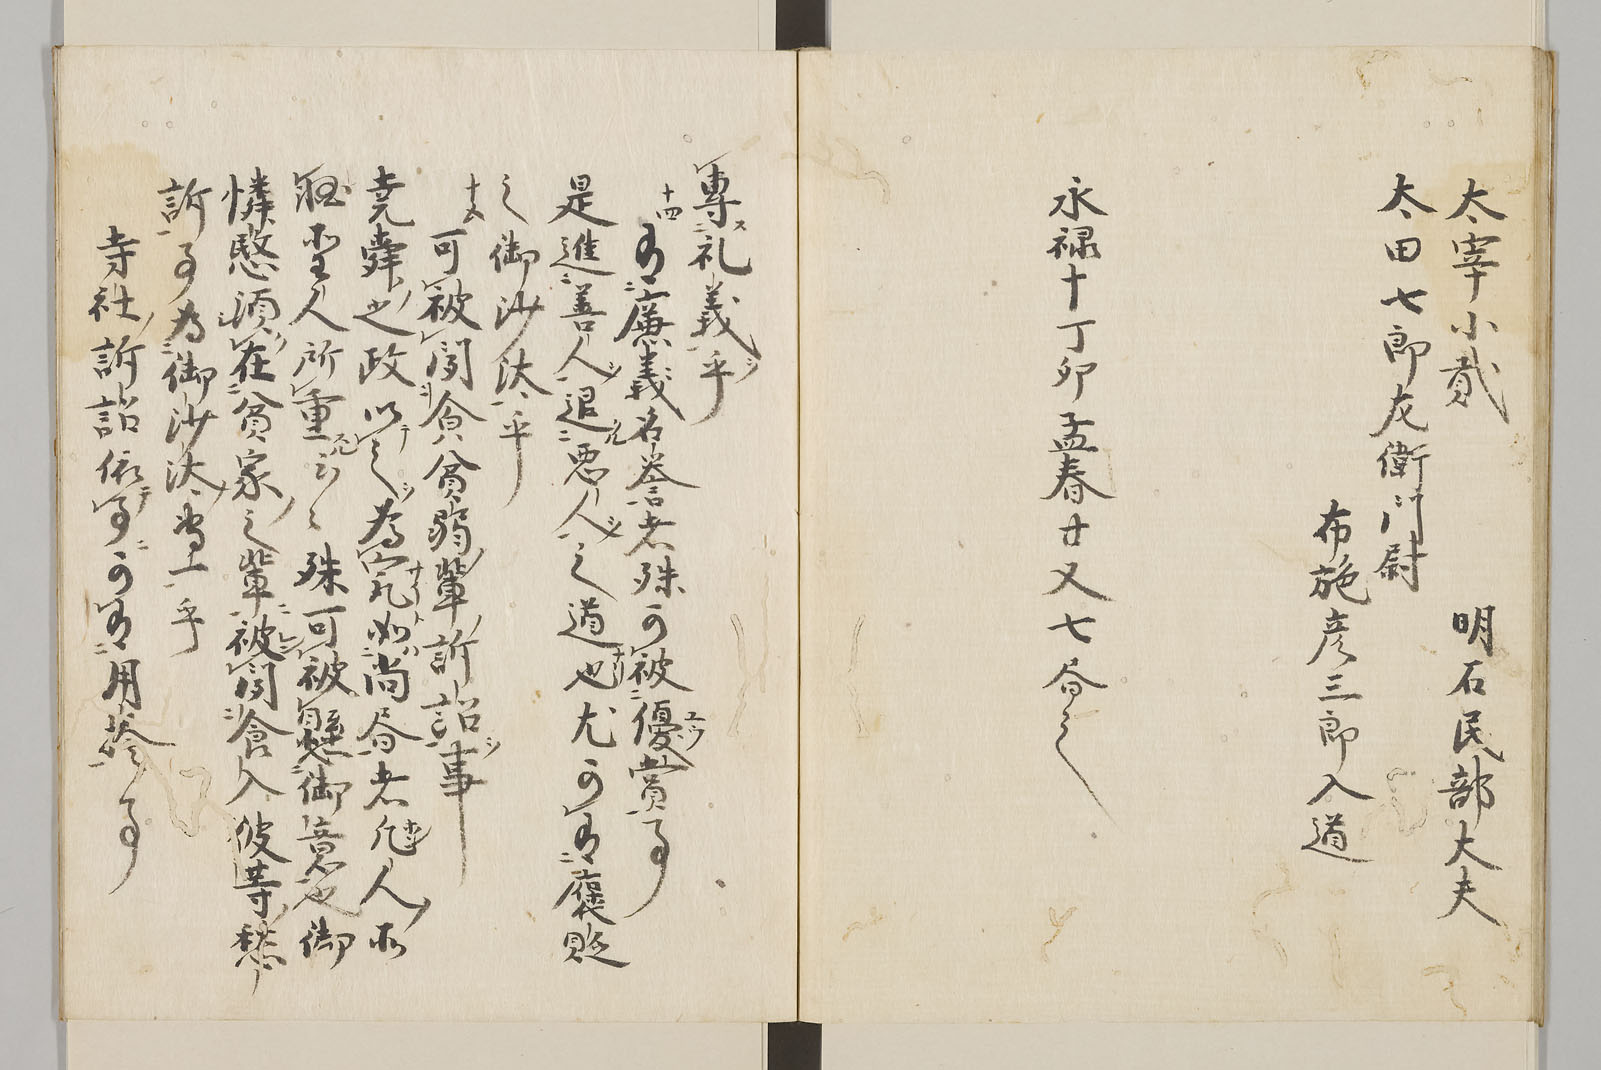 太宰小貳　明石民部大夫
太田七郎左衛門尉
布施彦三郎入道
永禄十丁卯孟春廿又七書之
専礼義乎
十四 有廉義名誉者殊可被優賞事
是進善人退悪人之道也尤可有褒貶
之御沙汰乎
十五 可被聞食貧弱輩訴訟事
堯舜之政以之為最如尚書者凡人所
軽聖人所重云々殊可被懸御意也御
憐愍須在貧家之輩被聞食入彼等愁
訴事為御沙汰専一乎
寺社訴訟依事可有用捨事